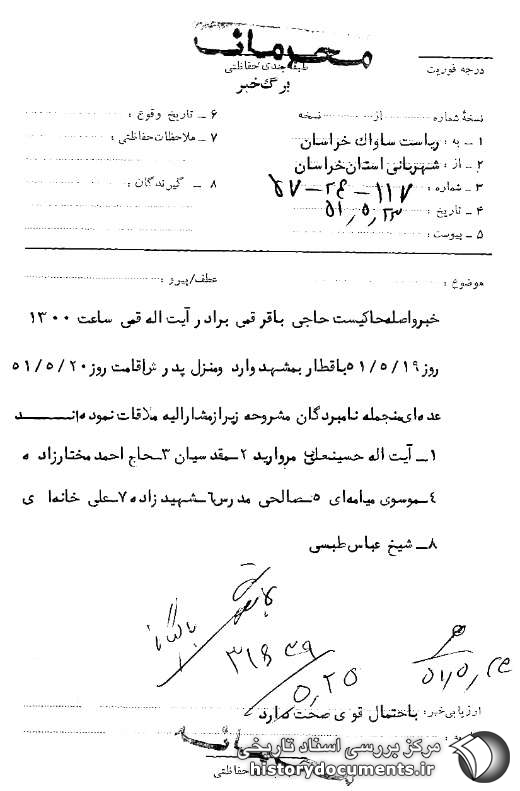 محرمانه
درجه فوریت
طبقه بندی حفاظتی
برگ خبر
نسخهٔ شماره از نسخه
۱ ـ به : ریاست ساواک خراسان
۲ ـ از : شهربانی استان خراسان
۳ ـ شماره : ۱۱۷ـ۲۴ـ۵۷
۴ ـ تاریخ : ۵۱٫۵٫۲۳
۵ ـ پیوست :
۶ ـ تاریخ وقوع :
۷ ـ ملاحظات حفاظتی :
۸ ـ گیرندگان :
موضوع : عطف/پیرو :
خبرواصله حاکیست حاجی باقر قمی برادر آیت اله قمی ساعت ۱۳۰۰
روز ۵۱/۵/۱۹ باقطار بمشهد وارد ومنزل پدرش اقامت روز ۵۱/۵/۲۰
عده ای منجمله نامبردگان مشروحه زیر از مشارالیه ملاقات نموده اند
۱ـ آیت اله حسینعلی مروارید ۲ـ مقدسیان ۳ـ حاج احمد مختارزاده
۴ـ موسوی میامه ای ۵ـ صالحی مدرس ۶ـ شهیدزاده ۷ـ علی خانه ای
۸ـ شیخ عباس طبسی
بایگانی
۵٫۲۵
ارزیابی خبر: باحتمال قوی صحت دارد
محرمانه
طبقه بندی حفاظتی
مرکز بررسی اسناد تاریخی
historydocuments.ir